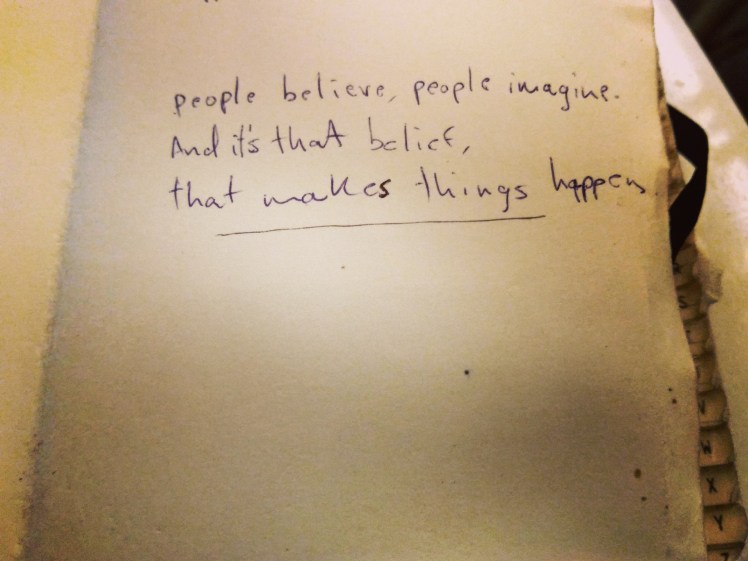 people believe, people imagine.
And it's that belief,
that makes things happen.
S
V
W
X
Y
Z